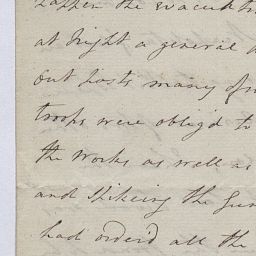 happen the evacuat
at Night a general
out posts many of
troops were oblig'd to
the works as well as
and Spikeing the Gun
had order'd all the